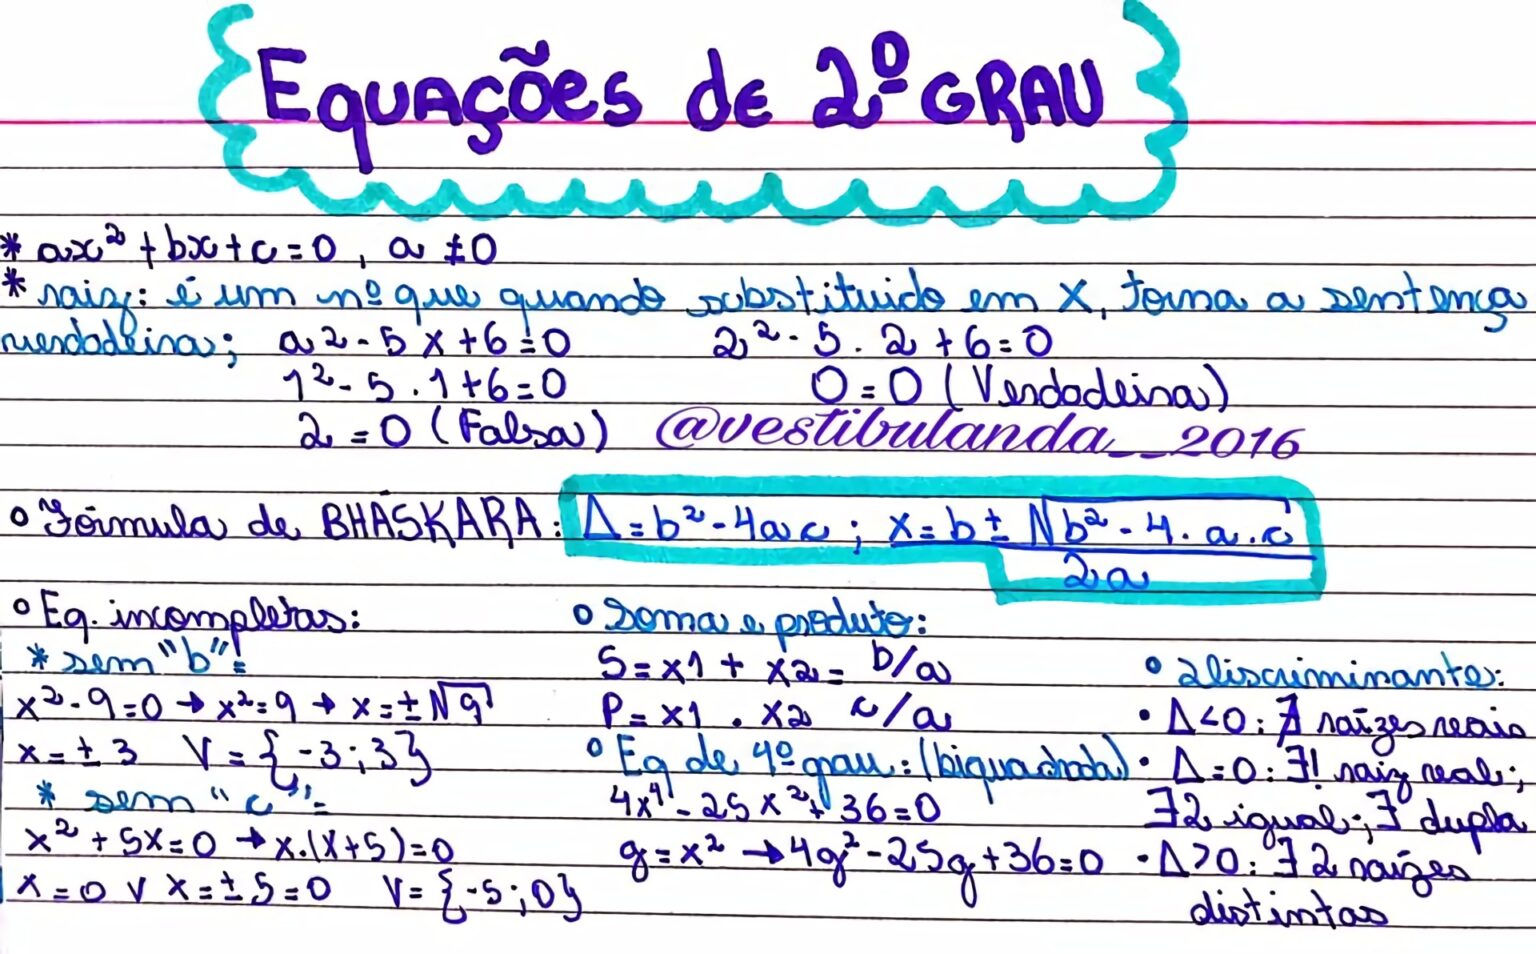 Equações de 2º GRAU
* ax² + bx + c = 0, a ≠ 0
* raiz: é um nº que quando substituido em X, torna a sentença
verdadeira; a 2 - 5 x + 6 = 0 2² - 5 . 2 + 6 = 0
1² - 5 . 1 + 6 = 0 0 = 0 (Verdadeira)
2 = 0 (Falsa) @vestibulanda__2016
o Fórmula de BHÁSKARA: Δ = b² - 4ac ; x = b ± √b² - 4 . a . c
2a
o Eq. incompletas:
* sem "b":
x² - 9 = 0 → x² = 9 → x = ± √9
x = ± 3 V = {-3; 3}
* sem "c":
x² + 5x = 0 → x.(x+5) = 0
x = 0 v x = ± 5 = 0 V = {-5; 0}
o Soma e produto:
S = x1 + x2 = b/a
P = x1 . x2 c/a
o Eq de 4º grau: (biquadrada)
4x⁴ - 25x² + 36 = 0
y = x² → 4y² - 25y + 36 = 0
o Discriminante:
• Δ < 0 : ∄ raízes reais
• Δ = 0 : ∃! raiz real;
∃ 2 igual; ∃ dupla
• Δ > 0 : ∃ 2 raízes
distintas